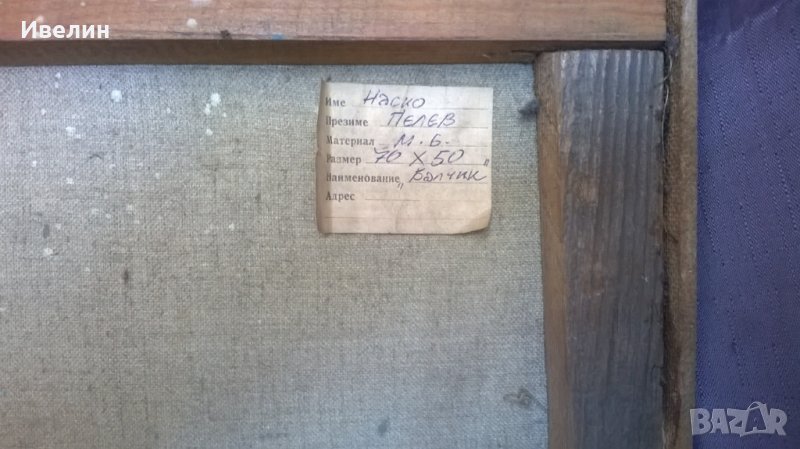 Ивелин
Име Наско
Презиме Пелев
Материал М. Б.
Размер 70 х 50
Наименование „Балчик"
Адрес
BAZAR